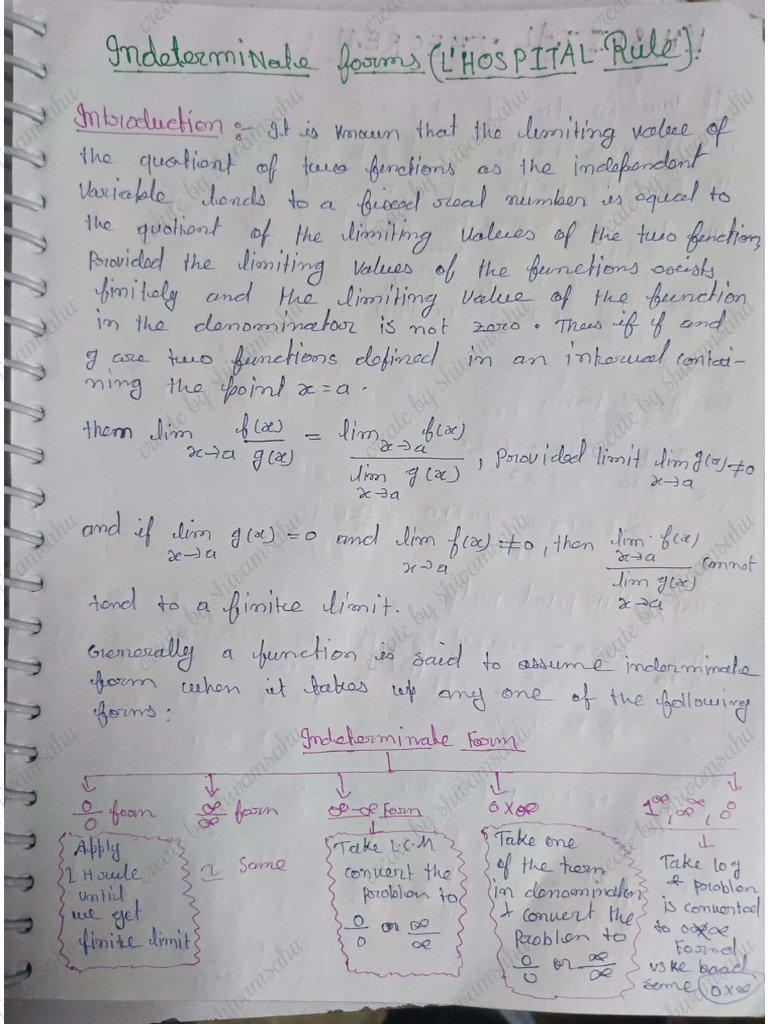 Indeterminate forms (L'HOSPITAL Rule)!
Introduction:- It is known that the limiting value of
the quotient of two functions as the independent
variable tends to a fixed real number is equal to
the quotient of the limiting values of the two function,
Provided the limiting values of the functions exists
finitely and the limiting value of the function
in the denominator is not zero. Thus if f and
g are two functions defined in an interval contai-
ning the point x = a.
then lim x→a f(x)/g(x) = lim x→a f(x) / lim x→a g(x), Provided limit lim x→a g(x) ≠ 0
and if lim x→a g(x) = 0 and lim x→a f(x) ≠ 0, then lim x→a f(x) / lim x→a g(x) cannot
tend to a finite limit.
Generally a function is said to assume inderminate
form when it takes up any one of the following
forms:
Indeterminate Form
0/0 form
∞/∞ form
∞-∞ Form
0×∞
1^∞, ∞^∞, 0^0
Apply
L.H rule
until
we get
finite limit
Same
Take L.C.M
convert the
problem to
0/0 or ∞/∞
Take one
of the term
in denominator
& convert the
Problem to
0/0 or ∞/∞
Take log
& problem
is converted
to 0×∞
Form
same 0×∞
create by shivamsahu